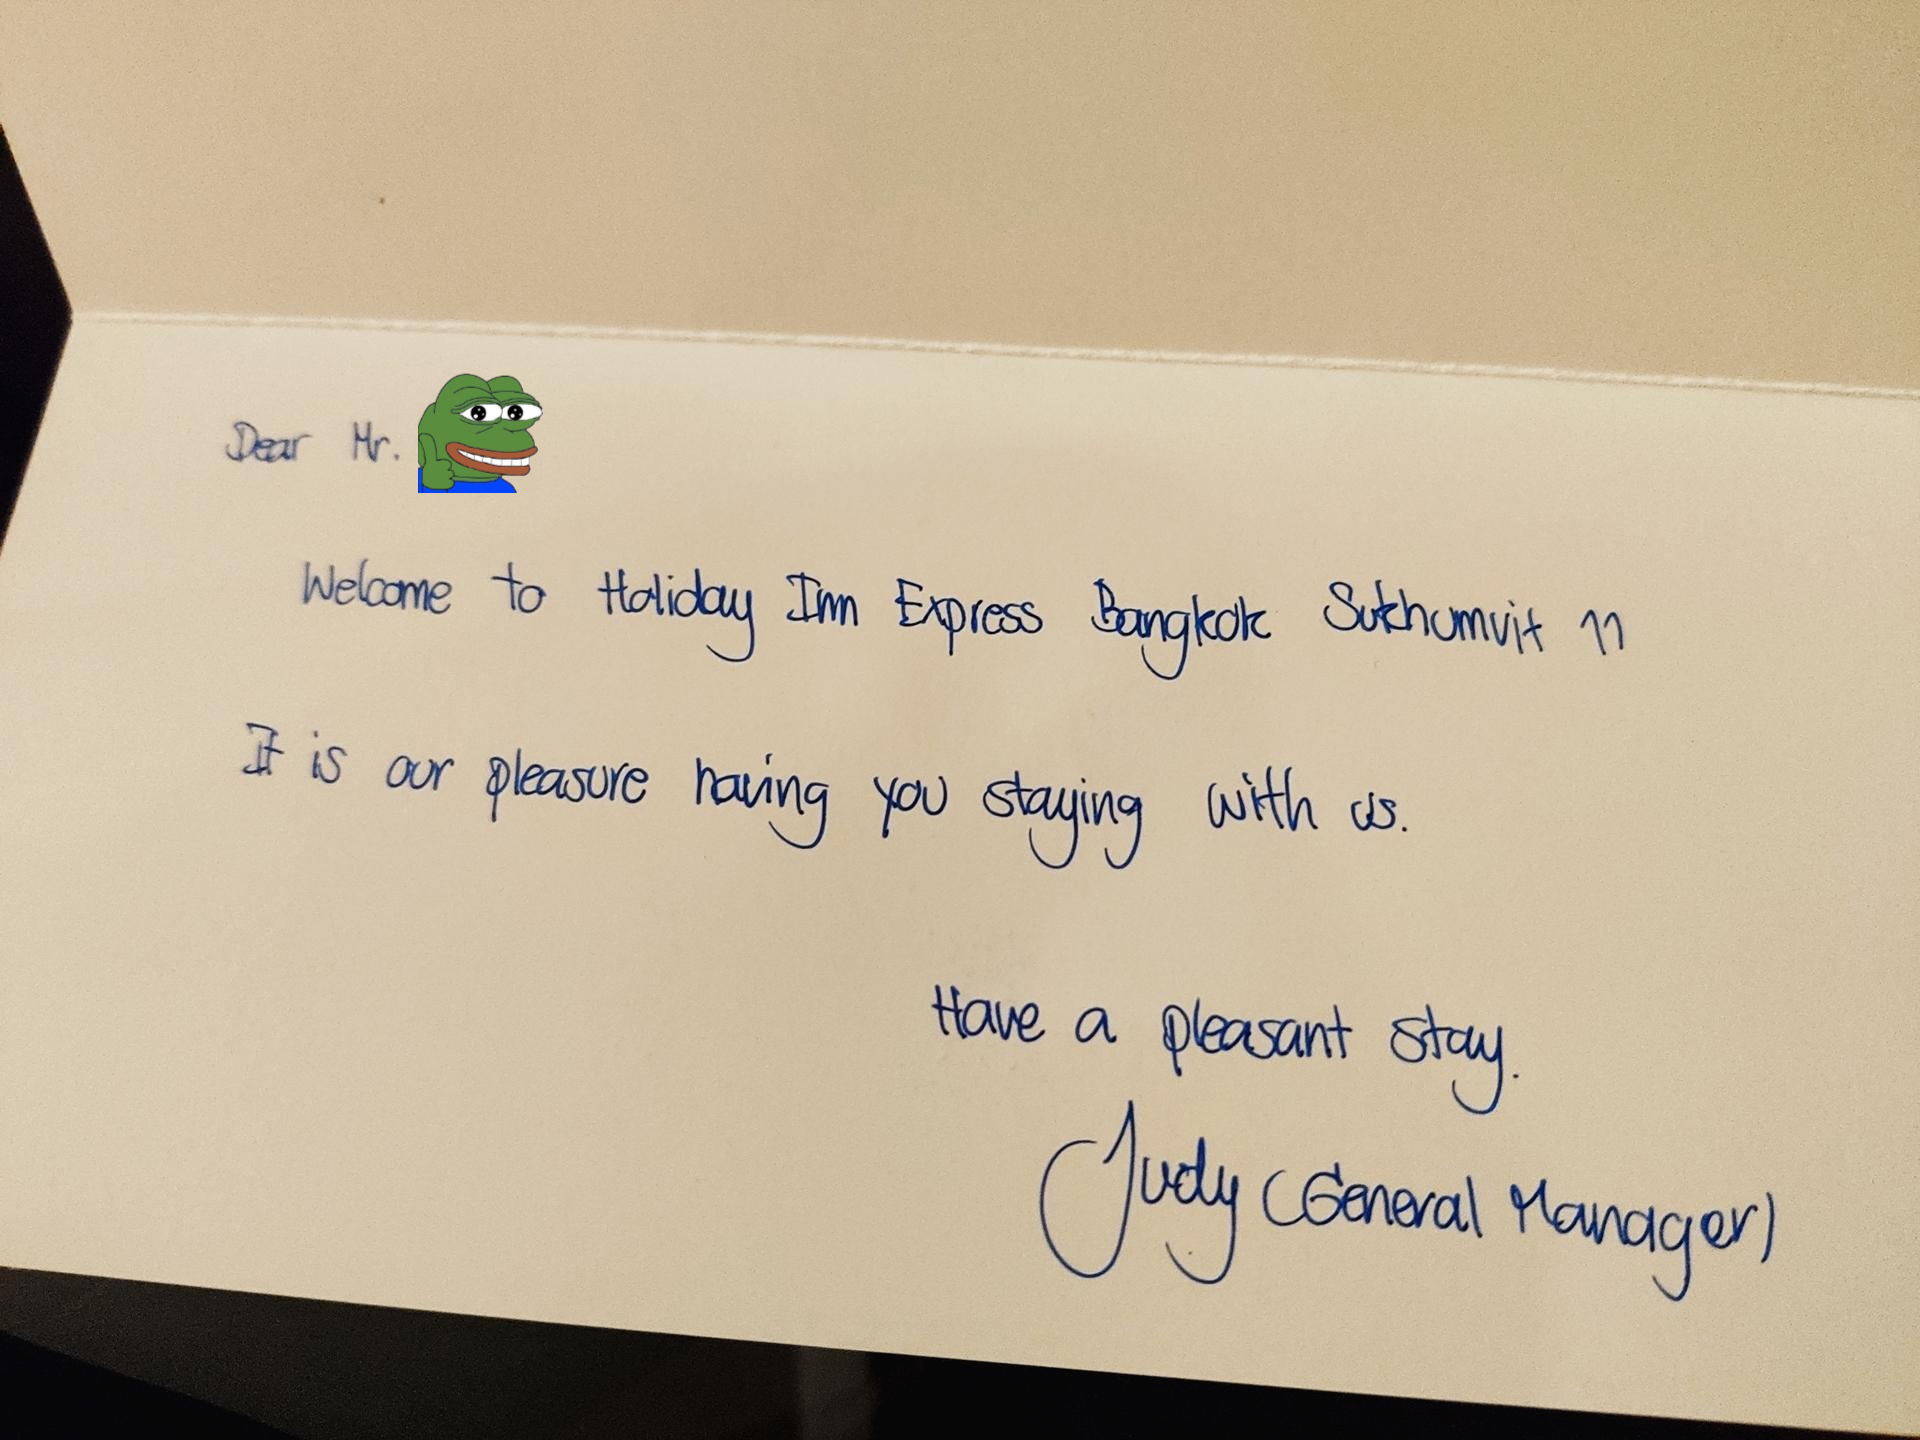 Dear Mr.
Welcome to Holiday Inn Express Bangkok Sukhumvit 11
It is our pleasure having you staying with us.
Have a pleasant stay.
Judy (General Manager)